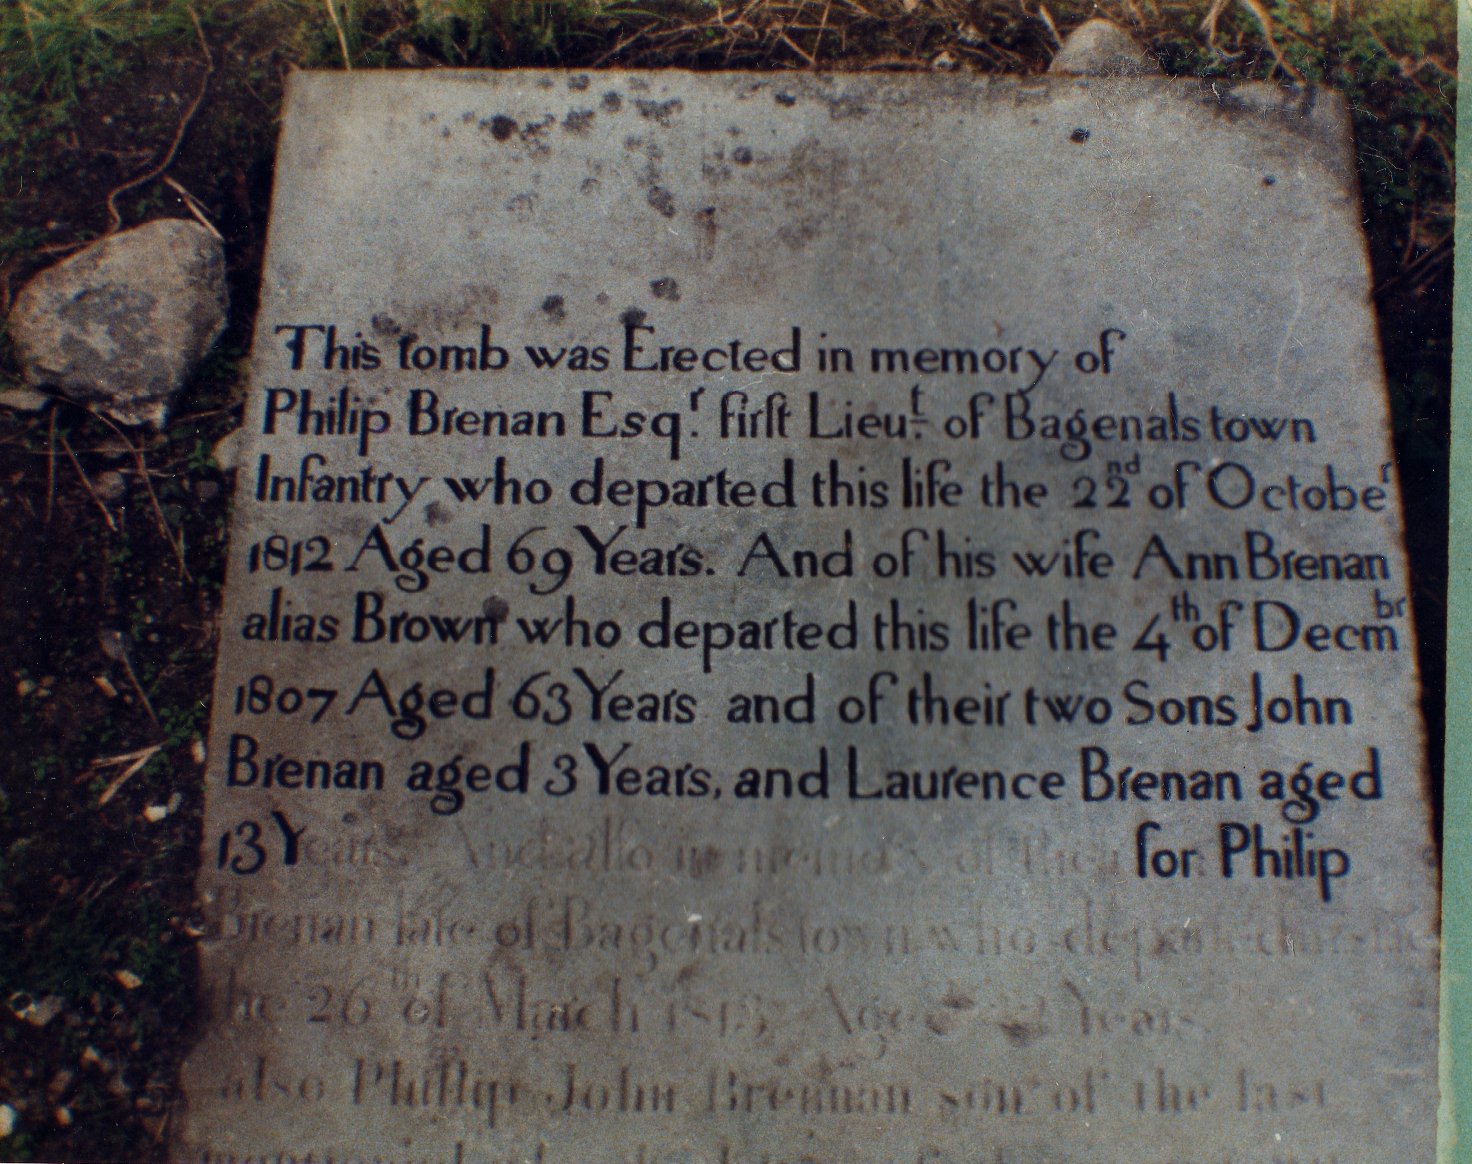 This tomb was Erected in memory of
Philip Brenan Esqr. firſt Lieut. of Bagenals town
Infantry who departed this life the 22nd of October
1812 Aged 69 Years. And of his wife Ann Brenan
alias Brown who departed this life the 4th of Decmbr
1807 Aged 63 Years and of their two Sons John
Brenan aged 3 Years, and Laurence Brenan aged
13 Years. And alſo in memory of their for Philip
Brenan late of Bagenals town who departed
the 26th of March Aged Years
also Phillip John Brennan son of the last